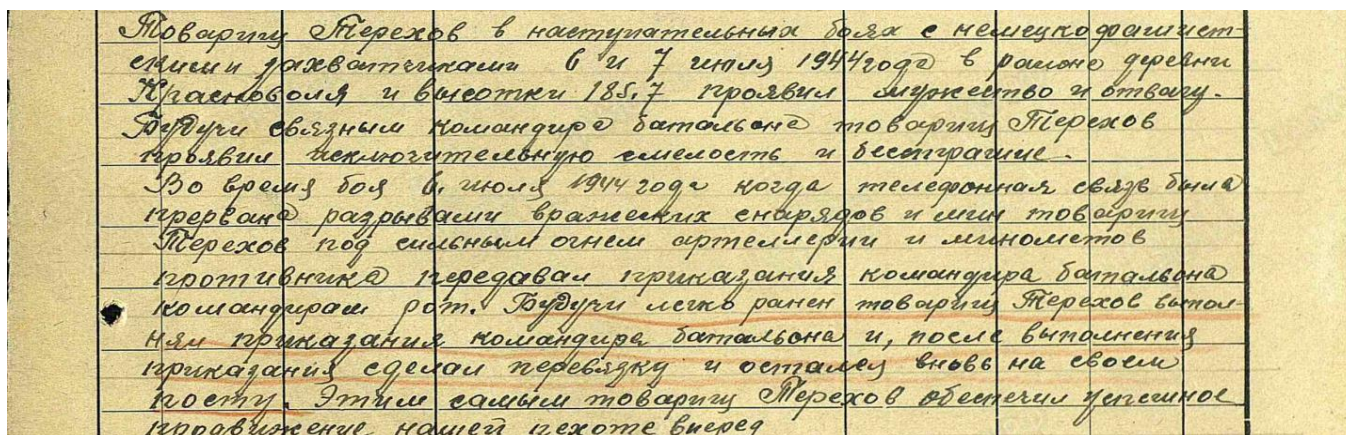 Товарищ Терехов в наступательных боях с немецкофашист-
скими захватчиками 6 и 7 июля 1944 года в районе деревни
Красноволя и высотки 185,7 проявил мужество и отвагу.
Будучи связным командира батальона товарищ Терехов
проявил исключительную смелость и бесстрашие.
Во время боя 6. июля 1944 года когда телефонная связь была
прервана разрывами вражеских снарядов и мин товарищ
Терехов под сильным огнем артеллерии и минометов
противника передавал приказания командира батальона
командирам рот. Будучи легко ранен товарищ Терехов выпол-
нял приказания командира батальона и, после выполнения
приказания сделал перевязку и остался вновь на своем
посту. Этим самым товарищ Терехов обеспечил успешное
продвижение нашей пехоте вперед